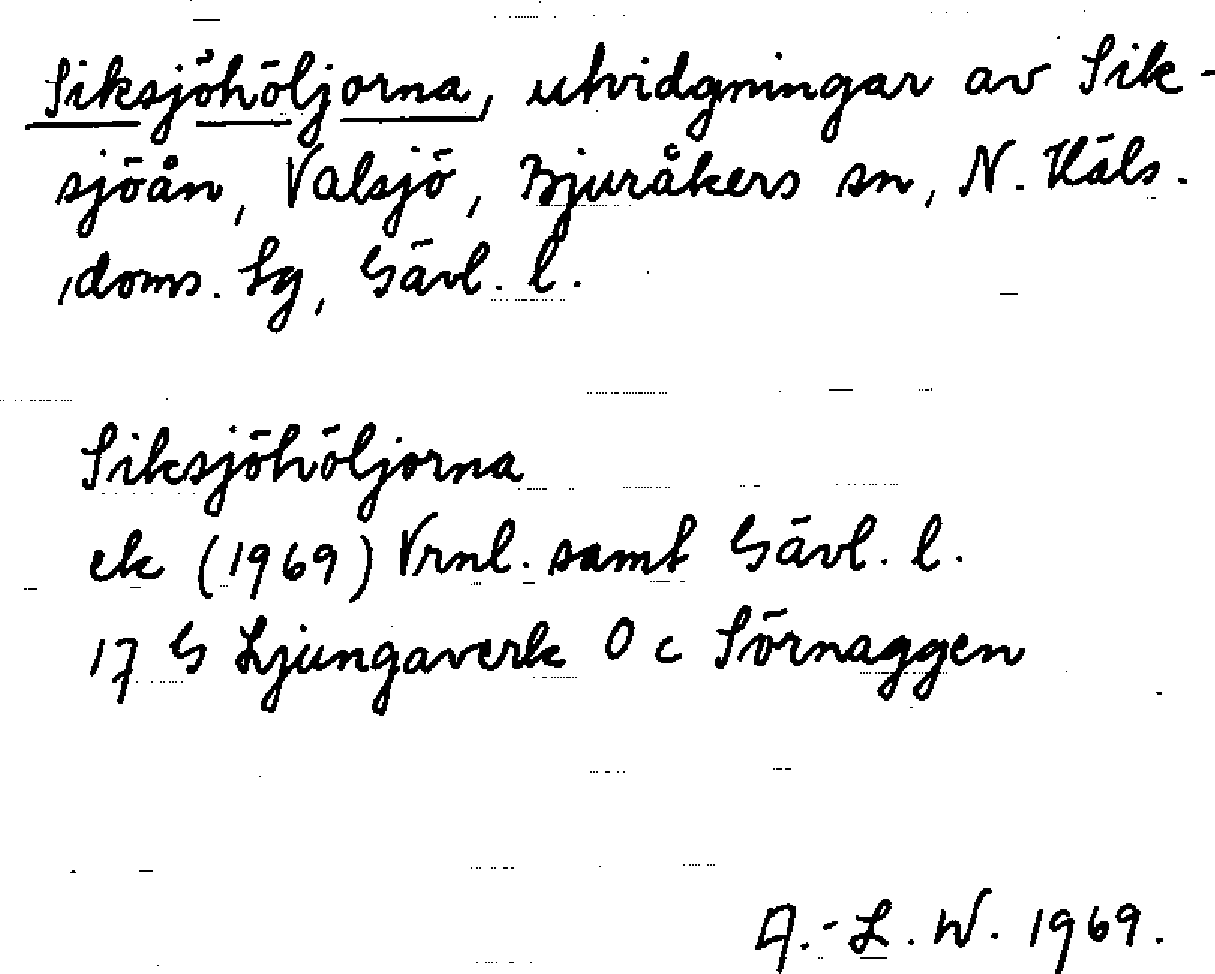 Siksjöhöljorna, utvidgningar av Sik-
sjöån, Valsjö, Bjuråkers sn, N. Häls.
doms. tg, Gävl. l.
Siksjöhöljorna
ek (1969) Vrnl. samt Gävl. l.
17 G Ljungaverk 0 c Sörnaggen
A.-L. W. 1969.